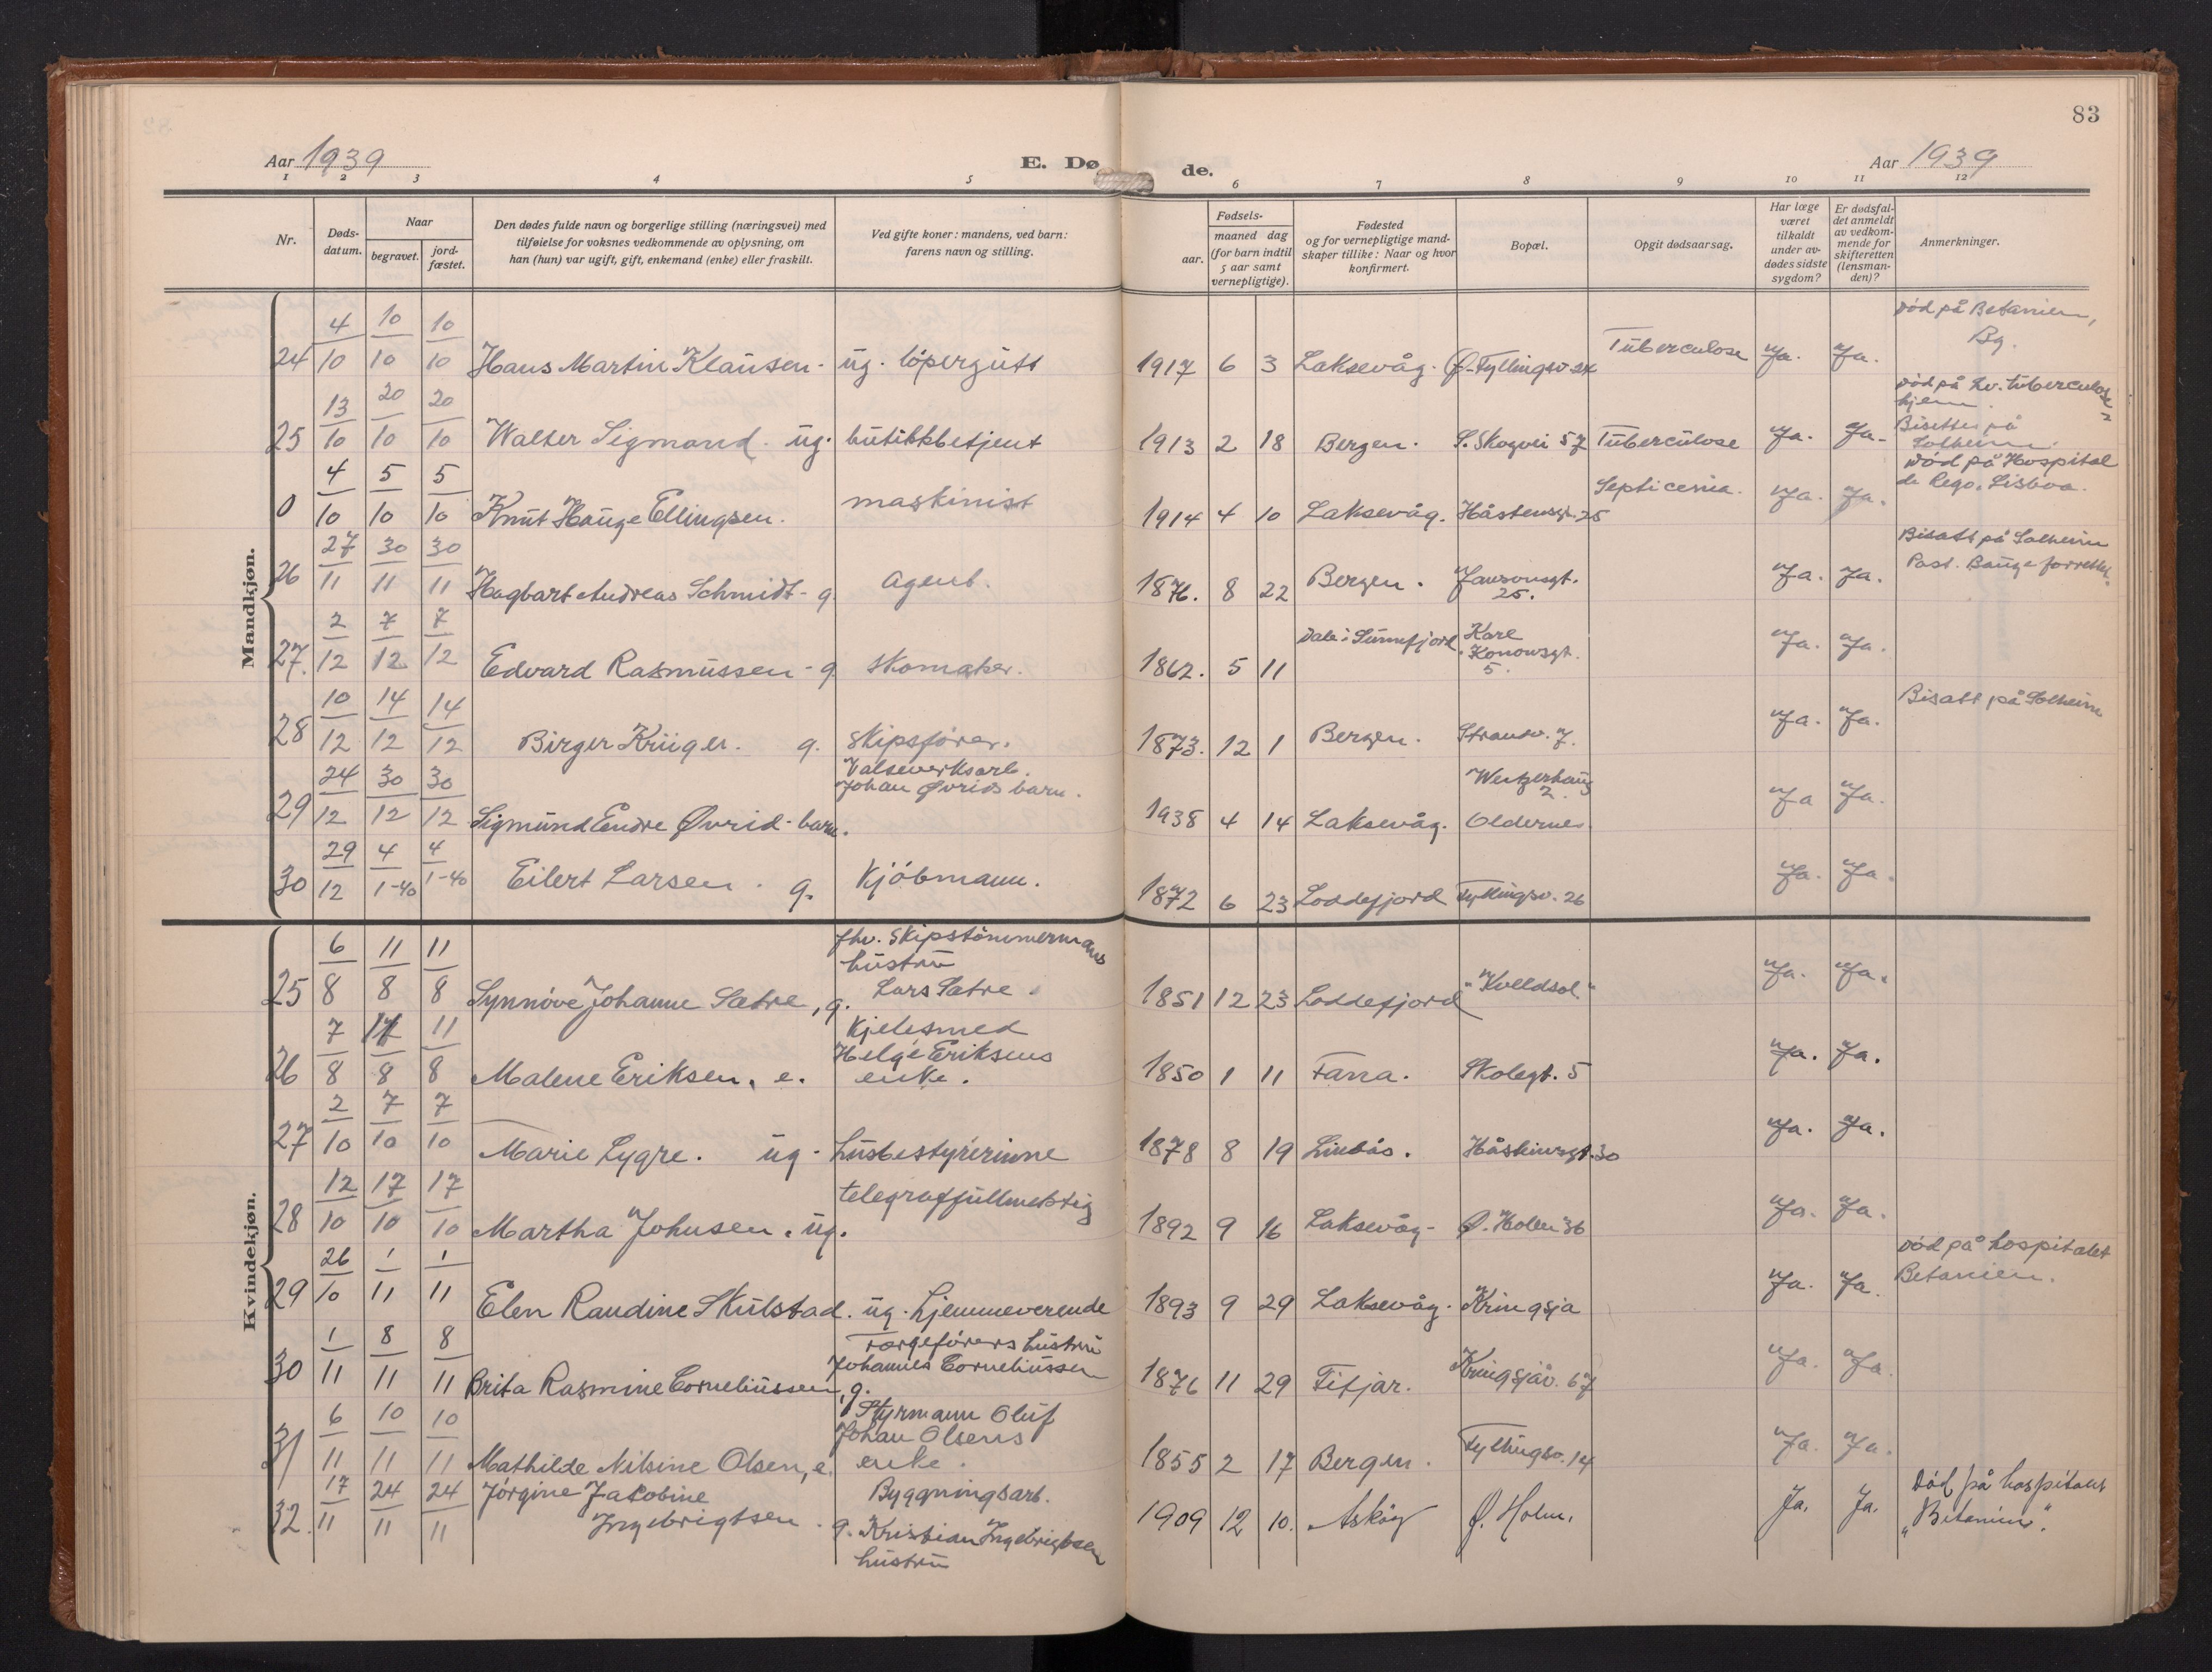 83
Aar 1939 E. Dø de. Aar 1939
1 2 3 4 5 6 7 8 9 10 11 12
Nr. Døds-datum. Naar begravet. jord-fæstet. Den dødes fulde navn og borgerlige stilling (næringsvei) med tilføielse for voksnes vedkommende av oplysning, om han (hun) var ugift, gift, enkemand (enke) eller fraskilt. Ved gifte koner: mandens, ved barn: farens navn og stilling. Fødsels- aar. maaned dag (for barn indtil 5 aar samt vernepligtige). Fødested og for vernepligtige mand-skaper tillike: Naar og hvor konfirmert. Bopæl. Opgit dødsaarsag. Har læge været tilkaldt under av-dødes sidste sygdom? Er dødsfal-det anmeldt av vedkom-mende for skifteretten (lensman-den)? Anmerkninger.
Mandkjøn.
24 4/10 10/10 10/10 Hans Martin Klausen - ug. løpergutt 1917 6 3 Laksevåg. Ø. Fyllingsv. 24 Tuberculose Ja. Ja. Død på Betanien, Bg.
25 13/10 20/10 20/10 Walter Sigmand. ug. butikkbetjent 1913 2 18 Bergen. S. Skogvei 57 Tuberculose Ja. Ja. død på Lv. tuberculose hjem. Bisettes på Solheim.
0 4/10 5/10 5/10 Knut Hauge Ellingsen. maskinist 1914 4 10 Laksevåg. Håstensgt. 25 Septicemia. Ja. Ja. Død på Hospital de Rego, Lisboa.
26 27/11 30/11 30/11 Hagbart Andreas Schmidt - g. agent. 1876. 8 22 Bergen. Jansonsgt. 25. Ja. Ja. Bisatt på Solheim Past. Bauge forrettet.
27. 2/12 7/12 7/12 Edvard Rasmussen - g. skomaker. 1862. 5 11 Dale i Sunnfjord. Karl Konowsgt. 5. Ja. Ja.
28 10/12 14/12 14/12 Birger Krüger. g. Skipsfører. 1873. 12 1 Bergen. Strandv. 7. Ja. Ja. Bisatt på Solheim
29 24/12 30/12 30/12 Sigmund Endre Øvrid - barn. Valseverksarb. Johan Øvrids barn. 1938 4 14 Laksevåg. 2. Oldernes Ja Ja.
30 29/12 4/1-40 4/1-40 Eilert Larsen. g. Kjøbmann. 1872 6 23 Loddefjord Fyllingsv. 26 Ja. Ja.
Kvindekjøn.
25 6/8 11/8 11/8 Synnøve Johanne Sætre, g. fhv. Skipstømmermanns hustru Lars Sætre. 1851 12 23 Loddefjord "Kvelldsol" Ja. Ja.
26 7/8 11/8 11/8 Malene Eriksen, e. Kjelesmed Helge Eriksens enke. 1850 1 11 Fana. Skolegt. 5 Ja. Ja.
27 2/10 7/10 7/10 Marie Lygre. ug. husbestyrerinne 1878 8 19 Lindås. Håsteinsgt. 30 Ja. Ja.
28 12/10 17/10 17/10 Martha Johnsen. ug. telegraffullmektig 1892 9 16 Laksevåg - Ø. Holen 36 Ja. Ja.
29 26/10 1/11 1/11 Elen Raudine Skulstad. ug. hjemmeverende 1893 9 29 Laksevåg. Kringsja Ja. Ja. Død på hospitalet Betanien.
30 1/11 8/11 8/11 Brita Rasmine Corneliussen, g. Færgeførers hustru Johannes Corneliussen 1876 11 29 Fitjar. Kringsjåv. 67 Ja. Ja.
31 6/11 10/11 10/11 Mathilde Nilsine Olsen, e. Styrmann Oluf Johan Olsens enke. 1855 2 17 Bergen. Fyllingsv. 14 Ja. Ja.
32. 17/11 24/11 24/11 Jørgine Jakobine Ingebrigtsen. g. Byggningsarb. Kristian Ingebrigtsen hustru 1909 12 10. Askøy Ø. Holm. Ja. Ja. Død på hospitalet "Betanien".